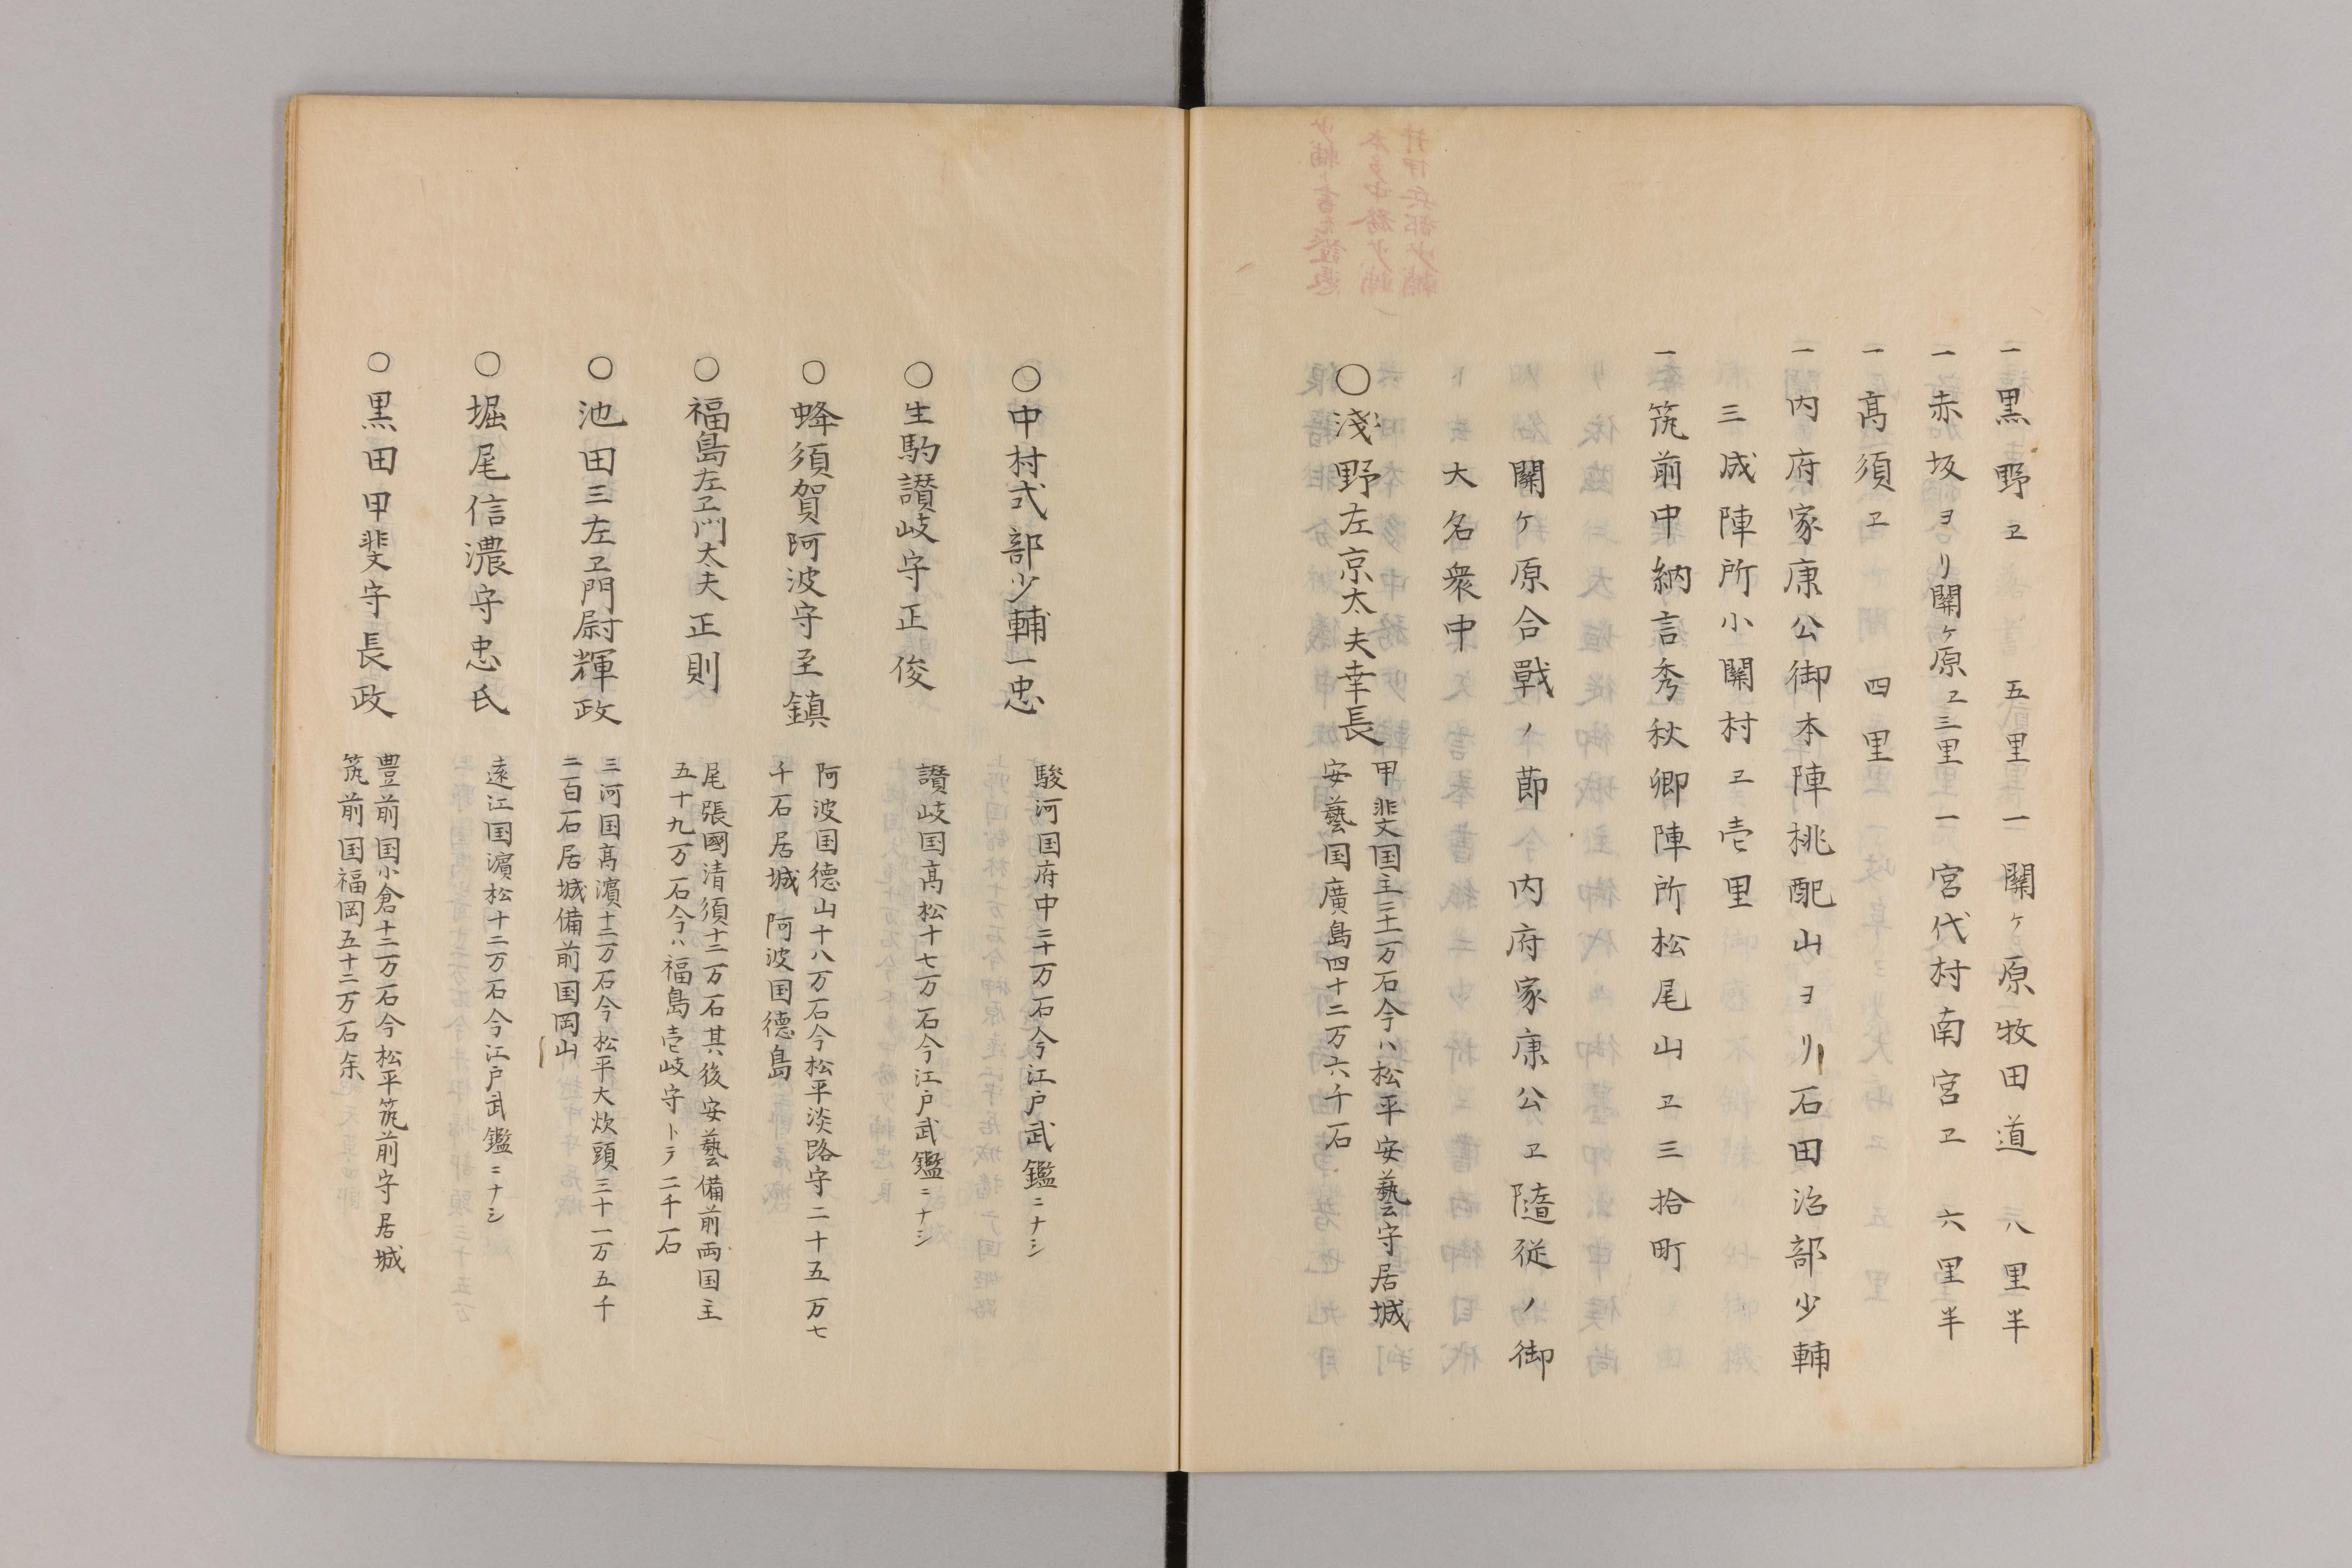 一黒野ヱ 五里 一關ケ原牧田道 八里半
一赤坂ヨリ關ケ原ヱ三里 一宮代村南宮ヱ 六里半
一髙須ヱ 四里
一内府家康公御本陣桃配山ヨリ石田治部少輔
三成陣所小關村ヱ壱里
一筑前中納言秀秋卿陣所松尾山ヱ三拾町
關ケ原合戰ノ莭今内府家康公ヱ隨従ノ御
大名衆中
○淺野左京太夫幸長
甲斐国主二十一万石今ハ松平安藝守居城
安藝国廣島四十二万六千石
○中村式部少輔一忠
駿河国府中二十万石今江戸武鑑ニナシ
○生駒讃岐守正俊
讃岐国髙松十七万石今江戸武鑑ニナシ
○蜂須賀阿波守至鎮
阿波国德山十八万石今松平淡路守二十五万七
千石居城阿波国德島
○福島左ヱ門太夫正則
尾張國清須十二万石其後安藝備前両国主
五十九万石今ハ福島壱岐守トテ二千石
○池田三左ヱ門尉輝政
三河国髙濵十二万石今松平大炊頭三十一万五千
二百石居城備前国岡山
○堀尾信濃守忠氏
遠江国濵松十二万石今江戸武鑑ニナシ
○黒田甲斐守長政
豊前国小倉十二万石今松平筑前守居城
筑前国福岡五十二万石余